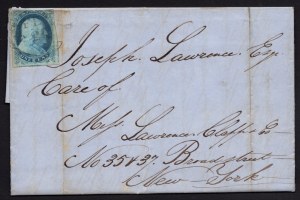 Joseph Lawrence Esq
Care of
Mess Lawrence Clapp &
No 35 & 37 Broad street
New York